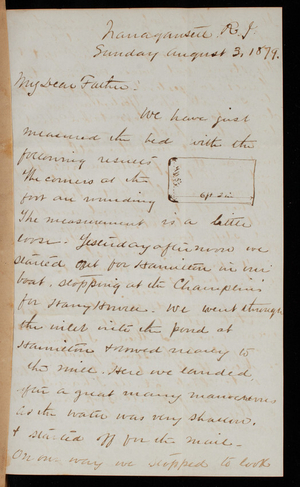 Narragansett R.I.
Sunday August 3, 1879.
My Dear Father.
We have just
measured the bed with the
following results
The corners at the
foot are rounding
6ft. 2in
The measurement is a little
loose. Yesterday afternoon we
started out for Hamilton in our
boat, stopping at the Champlin
for Harry Howice. We went through
the inlet into the pond at
Hamilton & rowed nearly to
the mill. Here we landed
after a great many manoeuvres
as the water was very shallow,
& started off for the mail.
On our way we stopped to look